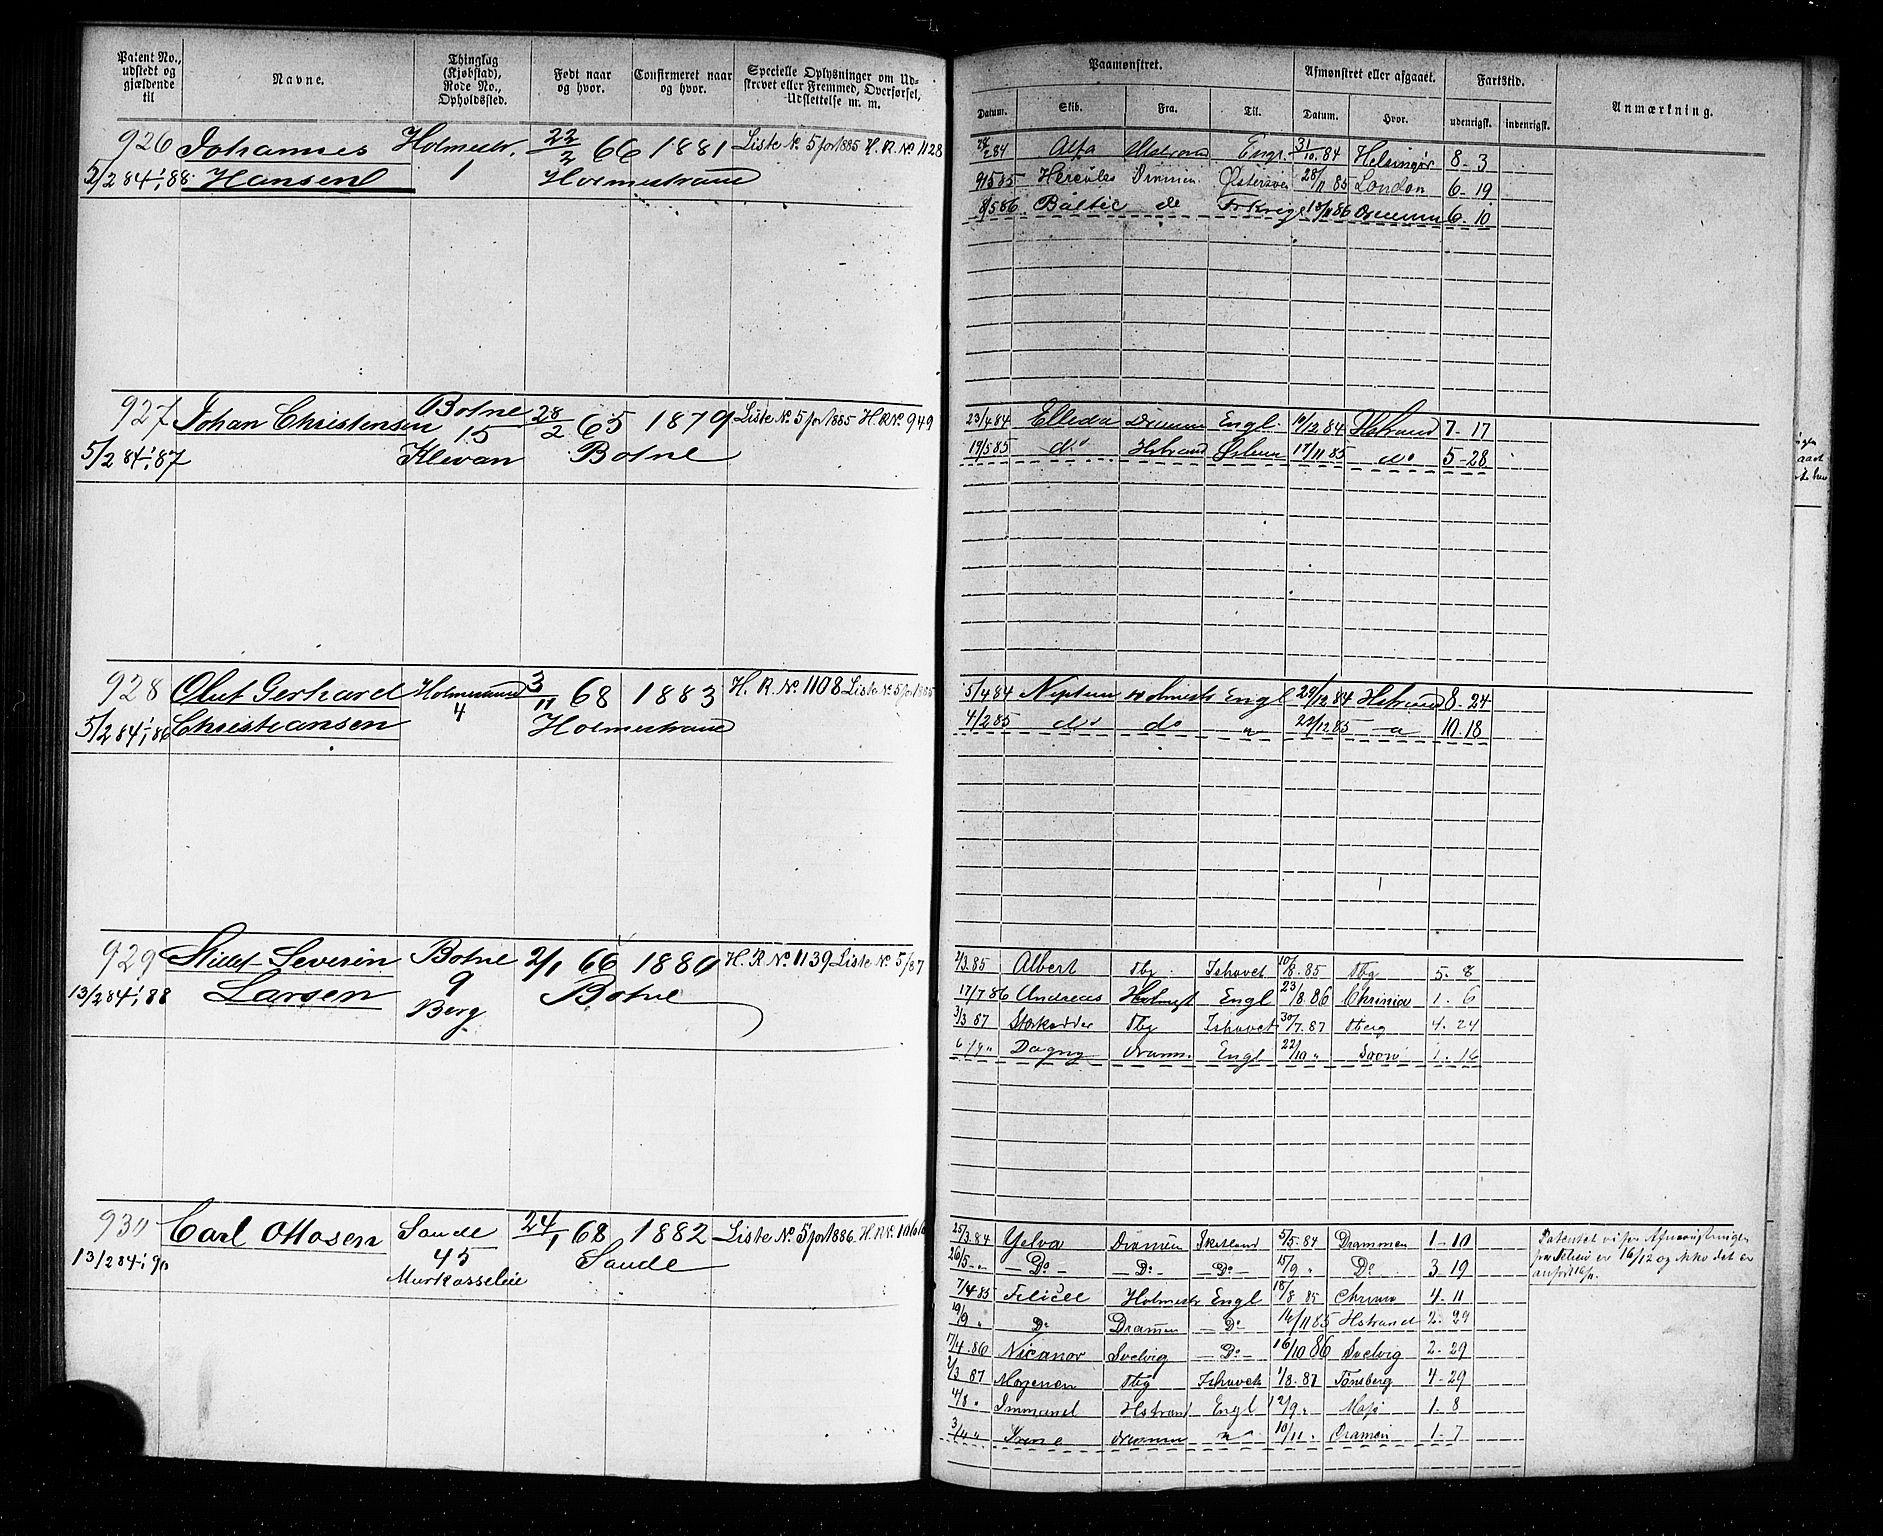 Patent No., udstedt og gjældende til
Navne.
Thinglag (Kjøbstad), Rode No., Opholdssted.
Født naar og hvor.
Confirmeret naar og hvor.
Specielle Oplysninger om Udskrevet eller Fremmed, Overførsel, Udslettelse m. m.
Paamønstret.
Afmønstret eller afgaaet.
Fartstid.
Anmærkning.
Datum. Skib. Fra. Til. Datum. Hvor. udenrigsk. indenrigsk.
926 Johannes Holmestr. 22/2 66 1881 Liste № 5 for 1885 H. R. № 1128
5/2 84 1/1 88 Hansen 1 Holmestrand
2 84 Alfa Engl. 31/10 84 Helsingør 8-3
9/5 85 Hercules Drammen Østersøen 28/11 85 London 6-19
8/5 86 Baltic do Frkrige 18/11 86 6-10
927 Johan Christensen Botne 28/2 65 1879 Liste № 5 for 1885 H. R. № 949
15
5/2 84 1/1 87 Klevan Botne
23/4 84 Ellida Drammen Engl. 10/12 84 Hstrand 7-17
19/5 85 do Hstrand 17/11 85 do 5-28
928 Oluf Gerhard Holmestrand 3/11 68 1883 H. R. № 1108 Liste № 5 for 1885
4
5/2 84 1/1 86 Christiansen Holmestrand
5/4 84 Neptun Holmestr Engl 29/12 84 Hstrand 8-24
4/2 85 do do " 22/12 85 10.18
929 Severin Botne 2/1 66 1880 H. R № 1139 Liste № 5/87
9
13/2 84 1/1 88 Larsen Berg Botne
2/3 85 Albert Tbg Ishavet 10/8 85 Tbg 5-8
17/7 86 Andreas Holmest Engl 23/8 86 Chrinia 1-6
3/3 87 Stærkodder Tbg Ishavet 30/7 87 Tberg 4-24
6/9 " Dagny Dramm. Engl 22/10 " 1-16
930 Carl Ottosen Sande 24/1 68 1882 Liste № 5 for 1886. H. R. № 1066
45
13/2 84 1/1 90 Sande
25/3 84 Yelva Drammen Skotland 5/5-84 Drammen 1-10
26/5 - " - Do - - Do - - Do - 15/9 " Do 3 19
7/4 85 Felicie Holmestr Engl 18/8 85 4-11
19/9 " Do Drammen - Do - 16/11 85 Hstrand 2-29
17/4 86 Nicanor Svelvig - Do - 16/10 86 Svelvig 2-29
2/3 87 Tbg Ishavet 1/8-87 Tønsberg 4-29
4/8 " Immanuel Hstrand Engl 12/9 " 1-8
3/ " Irene Drammen " 10/11 " Dramen 1-7
Patentet viser Afmønstringen
fra Felicie er 16/12 og ikke det er
anført 16/11.